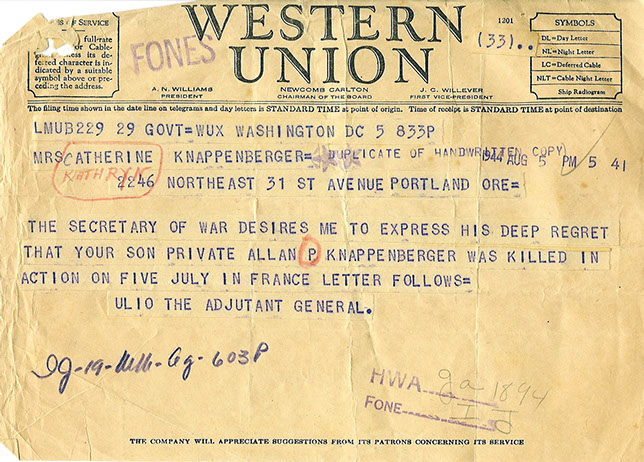 SS OF SERVICE
WESTERN UNION
1201
(33)..
FONES
full-rate
for Cable-
its de-
ferred character is in-
dicated by a suitable
symbol above or pre-
ceding the address.
SYMBOLS
DL=Day Letter
NL=Night Letter
LC=Deferred Cable
NLT=Cable Night Letter
Ship Radiogram
A. N. WILLIAMS
PRESIDENT
NEWCOMB CARLTON
CHAIRMAN OF THE BOARD
J. C. WILLEVER
FIRST VICE-PRESIDENT
The filing time shown in the date line on telegrams and day letters is STANDARD TIME at point of origin. Time of receipt is STANDARD TIME at point of destination
LMUB229 29 GOVT=WUX WASHINGTON DC 5 833P
MRS CATHERINE KNAPPENBERGER= DUPLICATE OF HANDWRITTEN COPY 1944 AUG 5 PM 5 41
KATHRYN
2246 NORTHEAST 31 ST AVENUE PORTLAND ORE=
THE SECRETARY OF WAR DESIRES ME TO EXPRESS HIS DEEP REGRET
THAT YOUR SON PRIVATE ALLAN P KNAPPENBERGER WAS KILLED IN
ACTION ON FIVE JULY IN FRANCE LETTER FOLLOWS=
ULIO THE ADJUTANT GENERAL.
603P
HWA
FONE
THE COMPANY WILL APPRECIATE SUGGESTIONS FROM ITS PATRONS CONCERNING ITS SERVICE